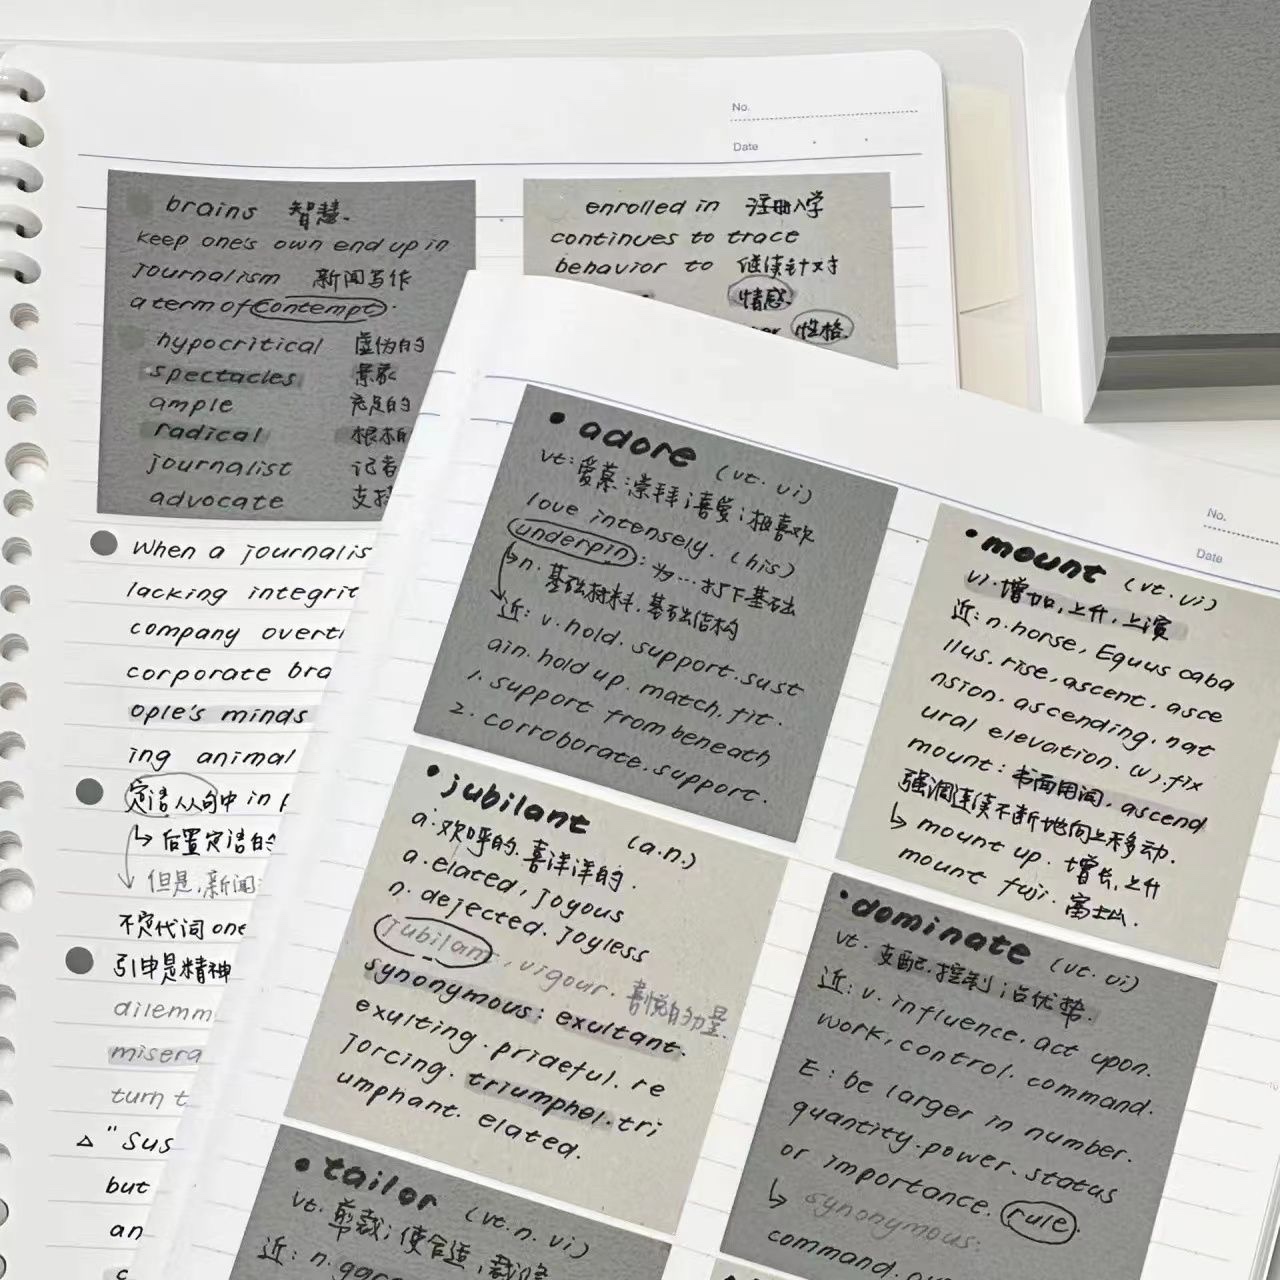 No.
Date
brains 智慧.
keep one's own end up in
journalism 新闻写作
a term of contempt.
hypocritical 虚伪的
spectacles 景象
ample 充足的
radical 根本的
journalist 记者
advocate 支持
enrolled in 注册入学
continues to trace
behavior to 继续针对
情感.
性格.
When a journalis
lacking integrit
company overt
corporate bra
ople's minds
ing animal
定语从句中 in
↳ 后置定语的
但是,新闻
不定代词 one
引申是精神
dilemm
misera
turn t
△ "Sus
but
an
No.
Date
• adore (vt. vi)
vt: 爱慕;崇拜;喜爱;极喜欢
love intensely. (his)
underpin: 为…打下基础
n. 基础材料,基础结构
近: v. hold. support. sust
ain. hold up. match. fit.
1. support from beneath
2. corroborate. support.
• mount (vt. vi)
vi. 增加,上升,上演
近: n. horse, Equus caba
llus. rise, ascent. asce
nsion. ascending. nat
ural elevation. (v). fix
mount: 书面用词, ascend
强调连续不断地向上移动.
↳ mount up. 增长,上升
mount fuji. 富士山.
• jubilant (a.n.)
a. 欢呼的.喜洋洋的.
a. elated, joyous
n. dejected. joyless
jubilant, vigour. 喜悦的力量.
synonymous: exultant.
exulting. prideful. re
jorcing. triumphel. tri
umphant. elated.
• dominate (vt. vi)
vt. 支配.控制;占优势.
近: v. influence. act upon.
work, control. command.
E: be larger in number.
quantity. power. status
or importance. rule.
↳ synonymous:
command.
• tailor (vt. n. vi)
vt. 剪裁;使合适,裁缝
近: n.